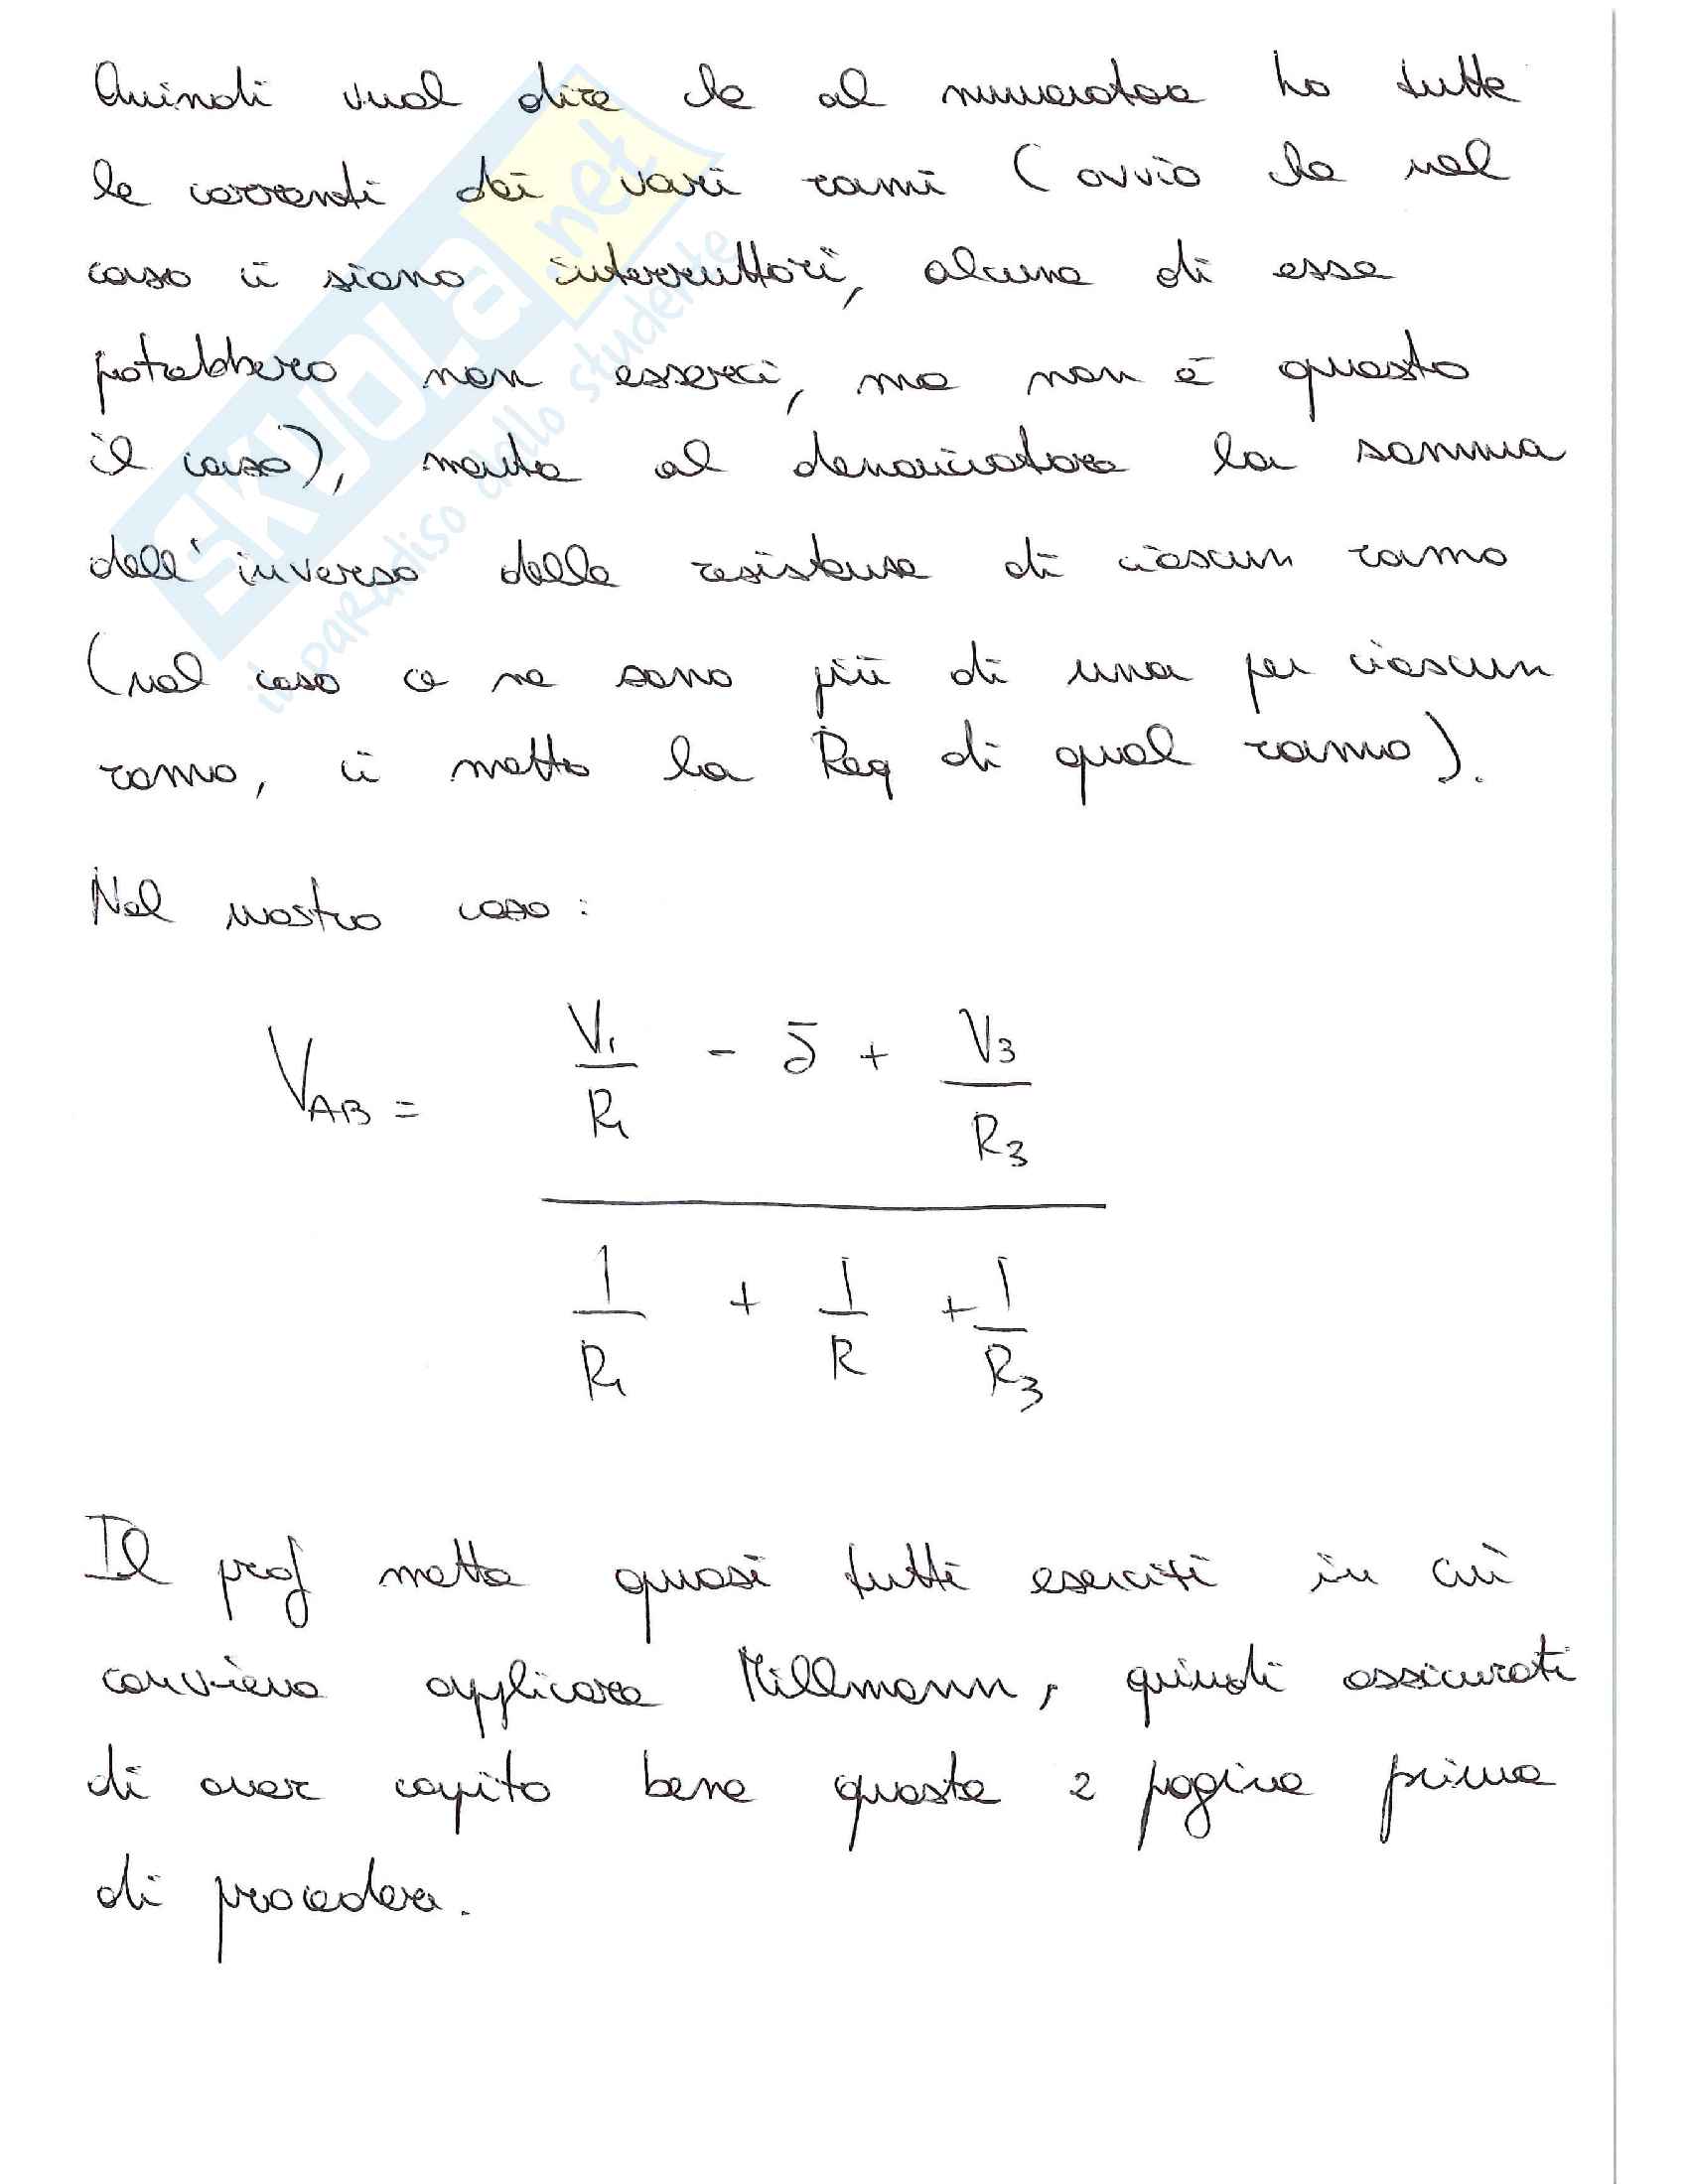 Quindi vuol dire che al numeratore ho tutte
le correnti dei vari rami (ovvio che nel
caso ci siano interruttori, alcune di esse
potrebbero non esserci, ma non è questo
il caso), mentre al denominatore la somma
dell'inverso delle resistenze di ciascun ramo
(nel caso ce ne sono più di una per ciascun
ramo, ci metto la Req di quel ramo).
Nel nostro caso:
V₁ - J + V₃
R₁ R₃
V_AB =
1 + 1 + 1
R₁ R R₃
Il prof mette quasi tutti esercizi in cui
conviene applicare Millmann, quindi assicurati
di aver capito bene queste 2 pagine prima
di procedere.
SKUOLA.net
il paradiso dello studente